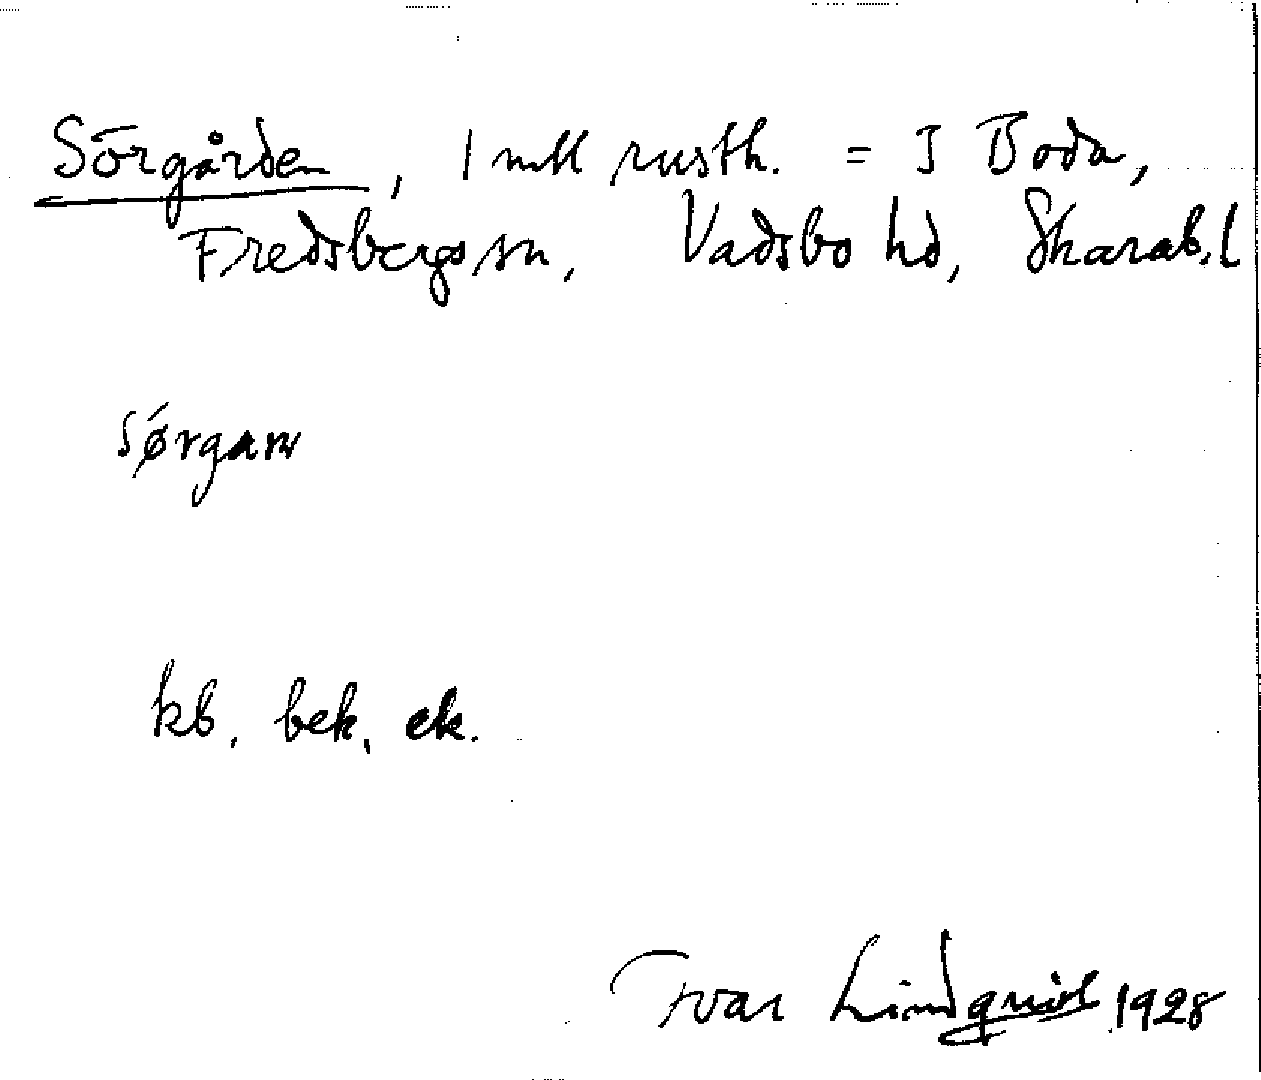 Sörgården, 1 mtl rusth. = I Boda,
Fredsbergs sn, Vadsbo hd, Skarab. l
sǿrgaɴ
kb. bek. ek.
Ivar Lindquist 1928